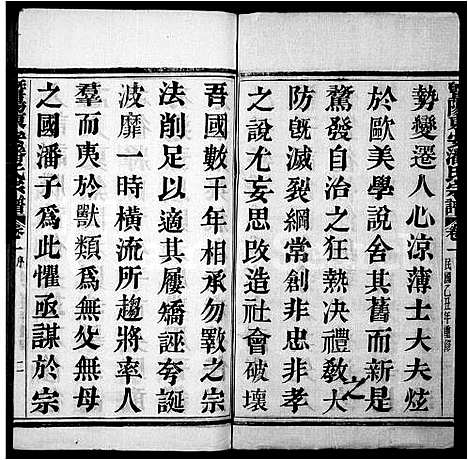 勢變遷人心涼薄士大夫炫
於歐美學說舍其舊而新是
騖發自治之狂熱決禮敎大
防旣滅綱常創非忠非孝
之說尤思改造社會破壞
吾國數千年相承勿斁之宗
法削足以適其屨矯誣夸誕
波靡一時橫流所趨將率人
羣而夷於獸類爲無父無母
之國潘子爲此懼亟謀於宗
潘氏宗譜
卷一
民國乙丑年重修
宗譜
卷一
序
二